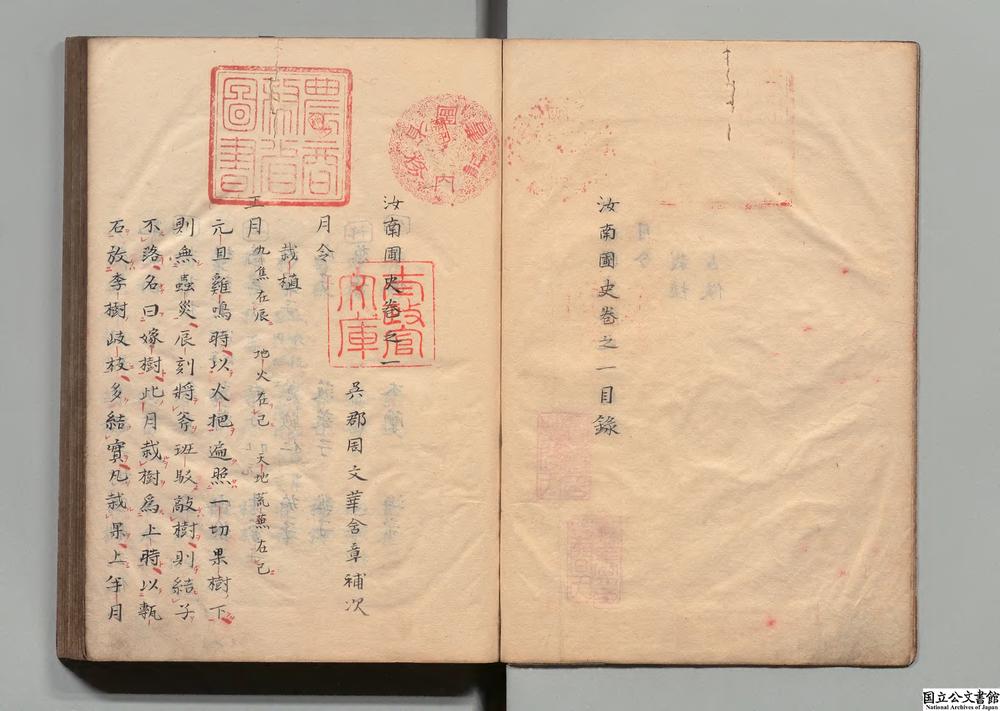 汝南圃史卷之一目錄
汝南圃史卷之一
吳郡周文華含章補次
月令
栽植
正月 九焦在辰 地火在巳 天地荒蕪在巳
元旦雞鳴時以火把遍照一切果樹下
則無蟲災辰刻將斧班駁敲樹則結子
不落名曰嫁樹此月栽樹爲上時以甎
石放李樹歧枝多結實凡栽果上半月
農商務省圖書
太政官文庫
国立公文書館
National Archives of Japan